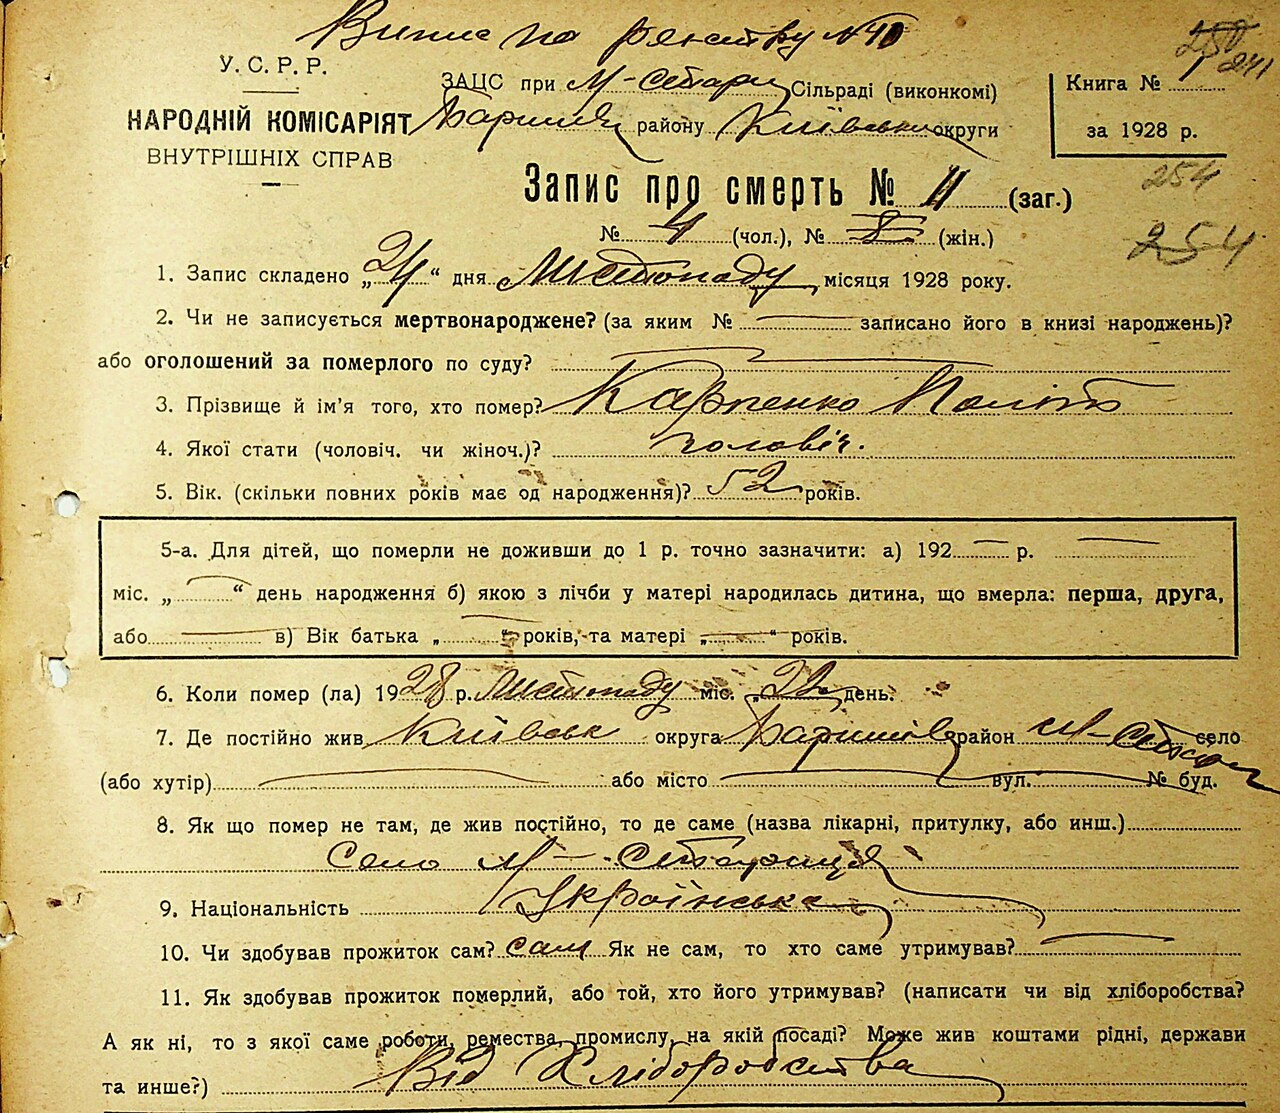 Випис по реєстру №
У. С. Р. Р.
НАРОДНІЙ КОМІСАРІЯТ
ВНУТРІШНІХ СПРАВ
ЗАЦС при М-Стариц Сільраді (виконкомі)
Баришів району Київськ округи
Книга № 1
за 1928 р.
241
Запис про смерть № 11 (заг.)
254
№ 4 (чол.), № (жін.)
254
1. Запис складено „24“ дня Листопаду місяця 1928 року.
2. Чи не записується мертвонароджене? (за яким № — записано його в книзі народжень)?
або оголошений за померлого по суду? —
3. Прізвище й ім'я того, хто помер? Карпенко
4. Якої стати (чоловіч. чи жіноч.)? чоловіч.
5. Вік. (скільки повних років має од народження)? 52 років.
5-а. Для дітей, що померли не доживши до 1 р. точно зазначити: а) 192 — р. —
міс. „ — “ день народження б) якою з лічби у матері народилась дитина, що вмерла: перша, друга,
або — в) Вік батька „ — “ років, та матері „ — “ років.
6. Коли помер (ла) 1928 р. Листопаду міс. „22 день.
7. Де постійно жив Київськ округа Баришів район М-Стариц село
(або хутір) — або місто — вул. № буд.
8. Як що помер не там, де жив постійно, то де саме (назва лікарні, притулку, або инш.)
Село М-Стариця
9. Національність Українська
10. Чи здобував прожиток сам? сам Як не сам, то хто саме утримував? —
11. Як здобував прожиток померлий, або той, хто його утримував? (написати чи від хліборобства?
А як ні, то з якої саме роботи, ремества, промислу, на якій посаді? Може жив коштами рідні, держави
та инше?) Від Хліборобства